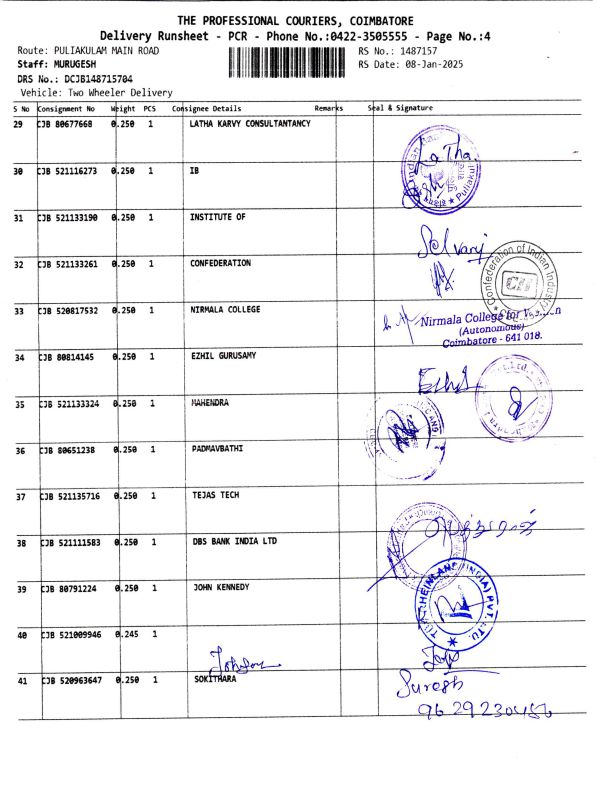 THE PROFESSIONAL COURIERS, COIMBATORE
Delivery Runsheet - PCR - Phone No.:0422-3505555 - Page No.:4
Route: PULIAKULAM MAIN ROAD RS No.: 1487157
Staff: MURUGESH RS Date: 08-Jan-2025
DRS No.: DCJB148715704
Vehicle: Two Wheeler Delivery
S No Consignment No Weight PCS Consignee Details Remarks Seal & Signature
29 CJB 80677668 0.250 1 LATHA KARVY CONSULTANTANCY
Latha
30 CJB 521116273 0.250 1 IB
31 CJB 521133190 0.250 1 INSTITUTE OF
Selvaraj
32 CJB 521133261 0.250 1 CONFEDERATION
Confederation of Indian Industry
CII
33 CJB 520817532 0.250 1 NIRMALA COLLEGE
Nirmala College for
(Autonomous)
Coimbatore - 641 018.
34 CJB 80814145 0.250 1 EZHIL GURUSAMY
35 CJB 521133324 0.250 1 MAHENDRA
36 CJB 80651238 0.250 1 PADMAVBATHI
37 CJB 521135716 0.250 1 TEJAS TECH
38 CJB 521111583 0.250 1 DBS BANK INDIA LTD
39 CJB 80791224 0.250 1 JOHN KENNEDY
(INDIA) PVT. LTD.
40 CJB 521009946 0.245 1
Johnson
41 CJB 520963647 0.250 1 SOKITHARA
Suresh
9629230456